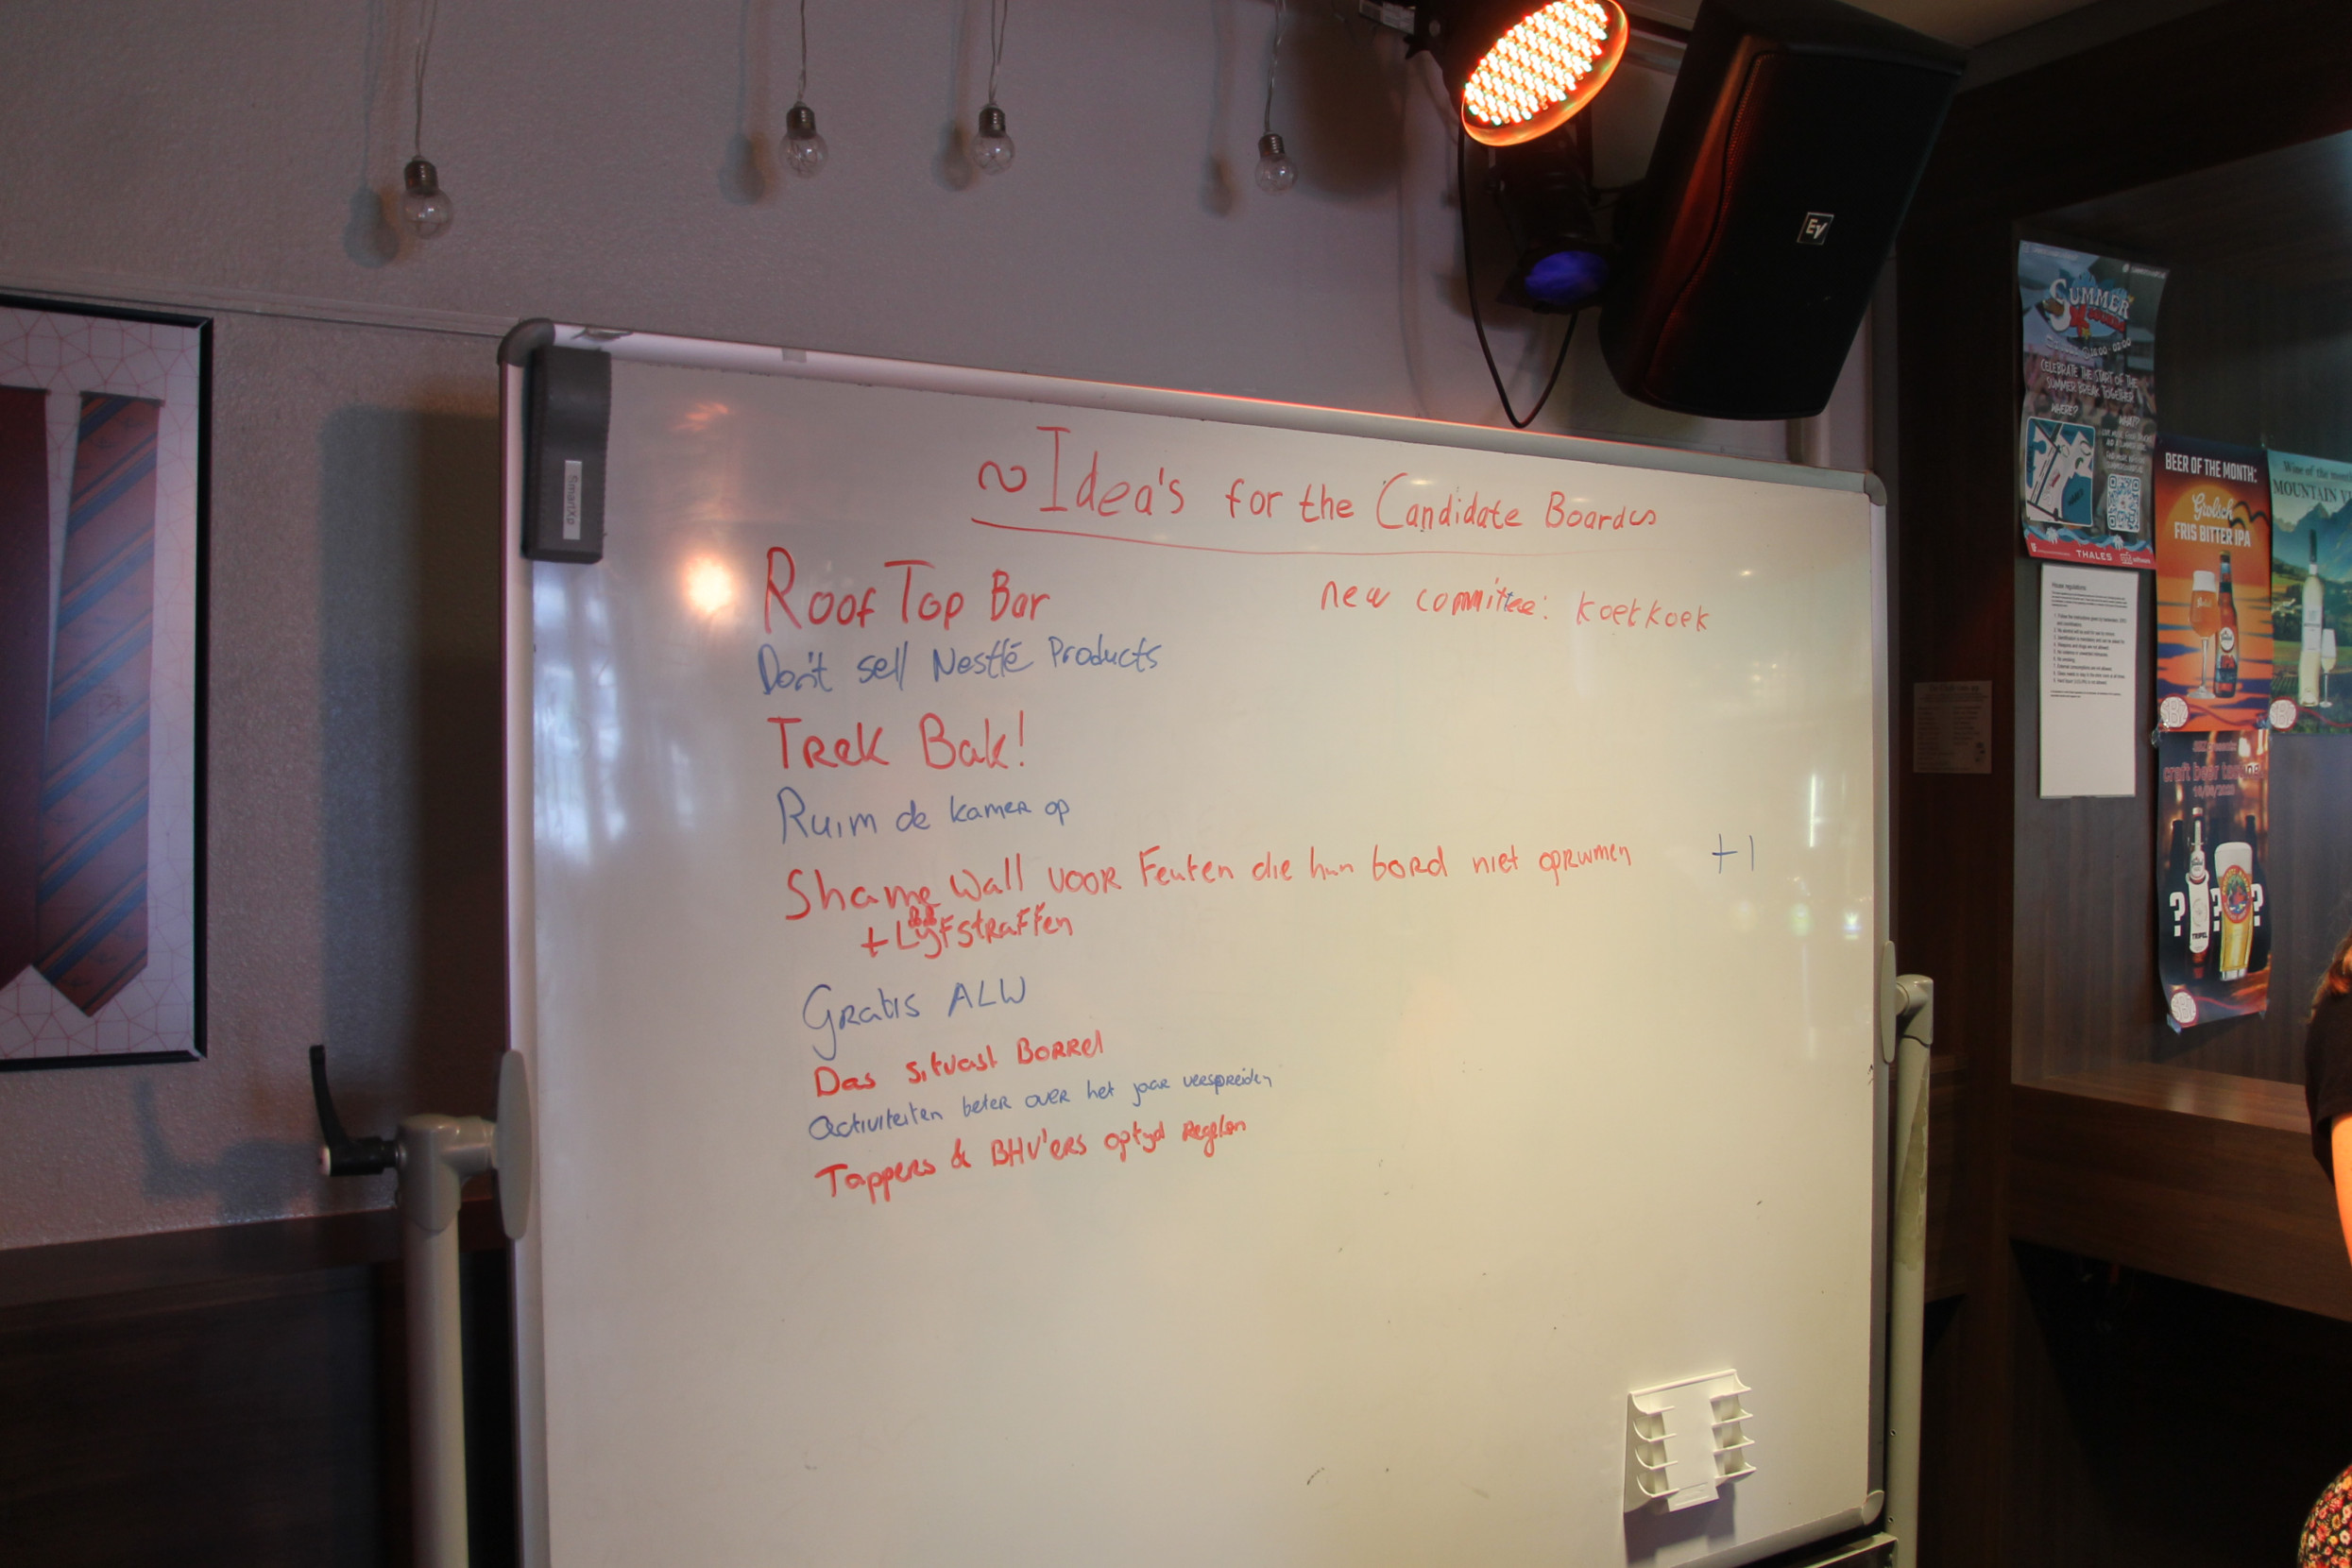 ~Idea's for the Candidate Boards
RoofTop Bar
new committee: koekkoek
Don't sell Nestlé Products
Trek Bak!
Ruim de kamer op
Shame Wall voor Feuten die hun bord niet opruimen +1
+Lijfstraffen
Gratis ALW
Das situast Borrel
Activiteiten beter over het jaar verspreiden
Tappers & BHV'ers optijd Regelen
SmartXp
EV
SUMMER
CELEBRATE THE START OF THE
SUMMER BREAK TOGETHER
WHERE?
WHAT?
THALES
House regulations
BEER OF THE MONTH:
Grolsch
FRIS BITTER IPA
Wine of the mo
MOUNTAIN V
craft beer tasting
TRIPEL
? ? ?